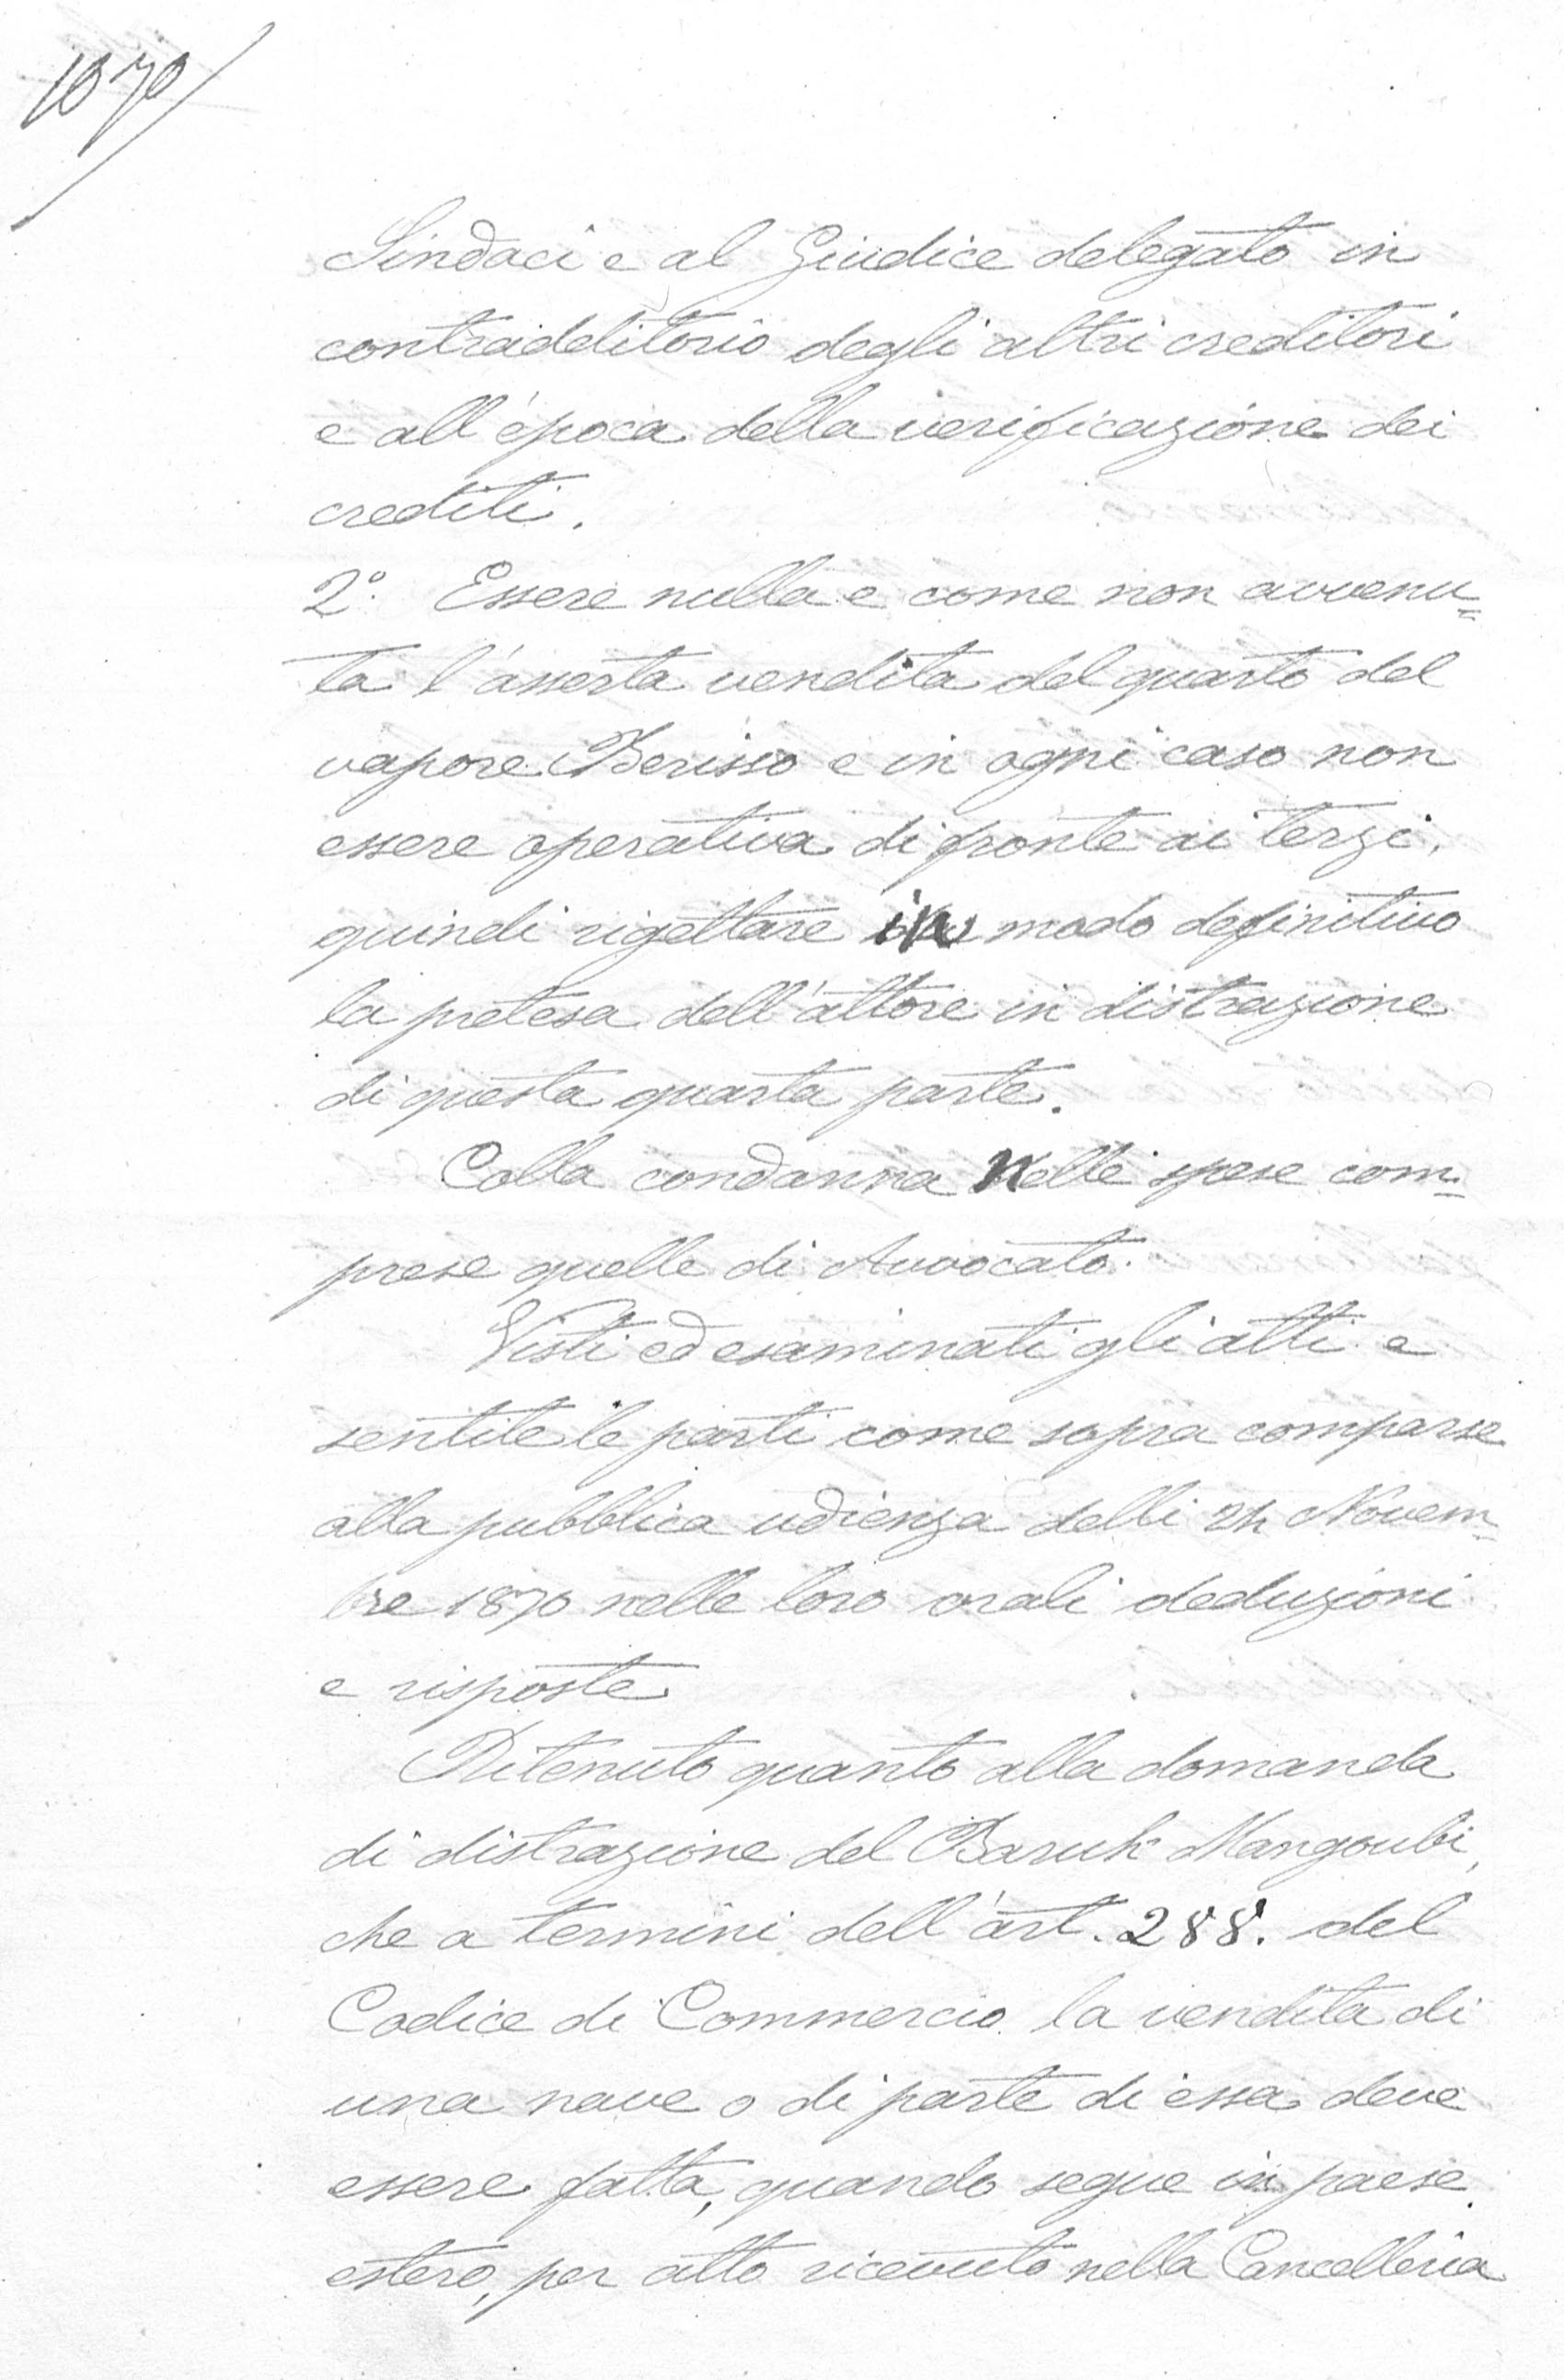 1070
Sindaci e al Giudice delegato in
contradditorio degli altri creditori
e all'epoca della verificazione dei
crediti.
2.° Essere nulla e come non avvenu=
ta l'asserta vendita del quarto del
vapore Berisso e in ogni caso non
essere operativa di fronte ai terzi,
quindi rigettare in modo definitivo
la pretesa dell'attore in distrazione
di questa quarta parte.
Colla condanna Nelle spese com=
prese quelle di Avvocato.
Visti ed esaminati gli atti e
sentite le parti come sopra comparse
alla pubblica udienza delli 24 Novem=
bre 1870 nelle loro orali deduzioni
e risposte
Ritenuto quanto alla domanda
di distrazione del Baruk Mangoubi,
che a termini dell'art. 288. del
Codice di Commercio la vendita di
una nave o di parte di essa deve
essere fatta, quando segue in paese
estero, per atto ricevuto nella Cancelleria